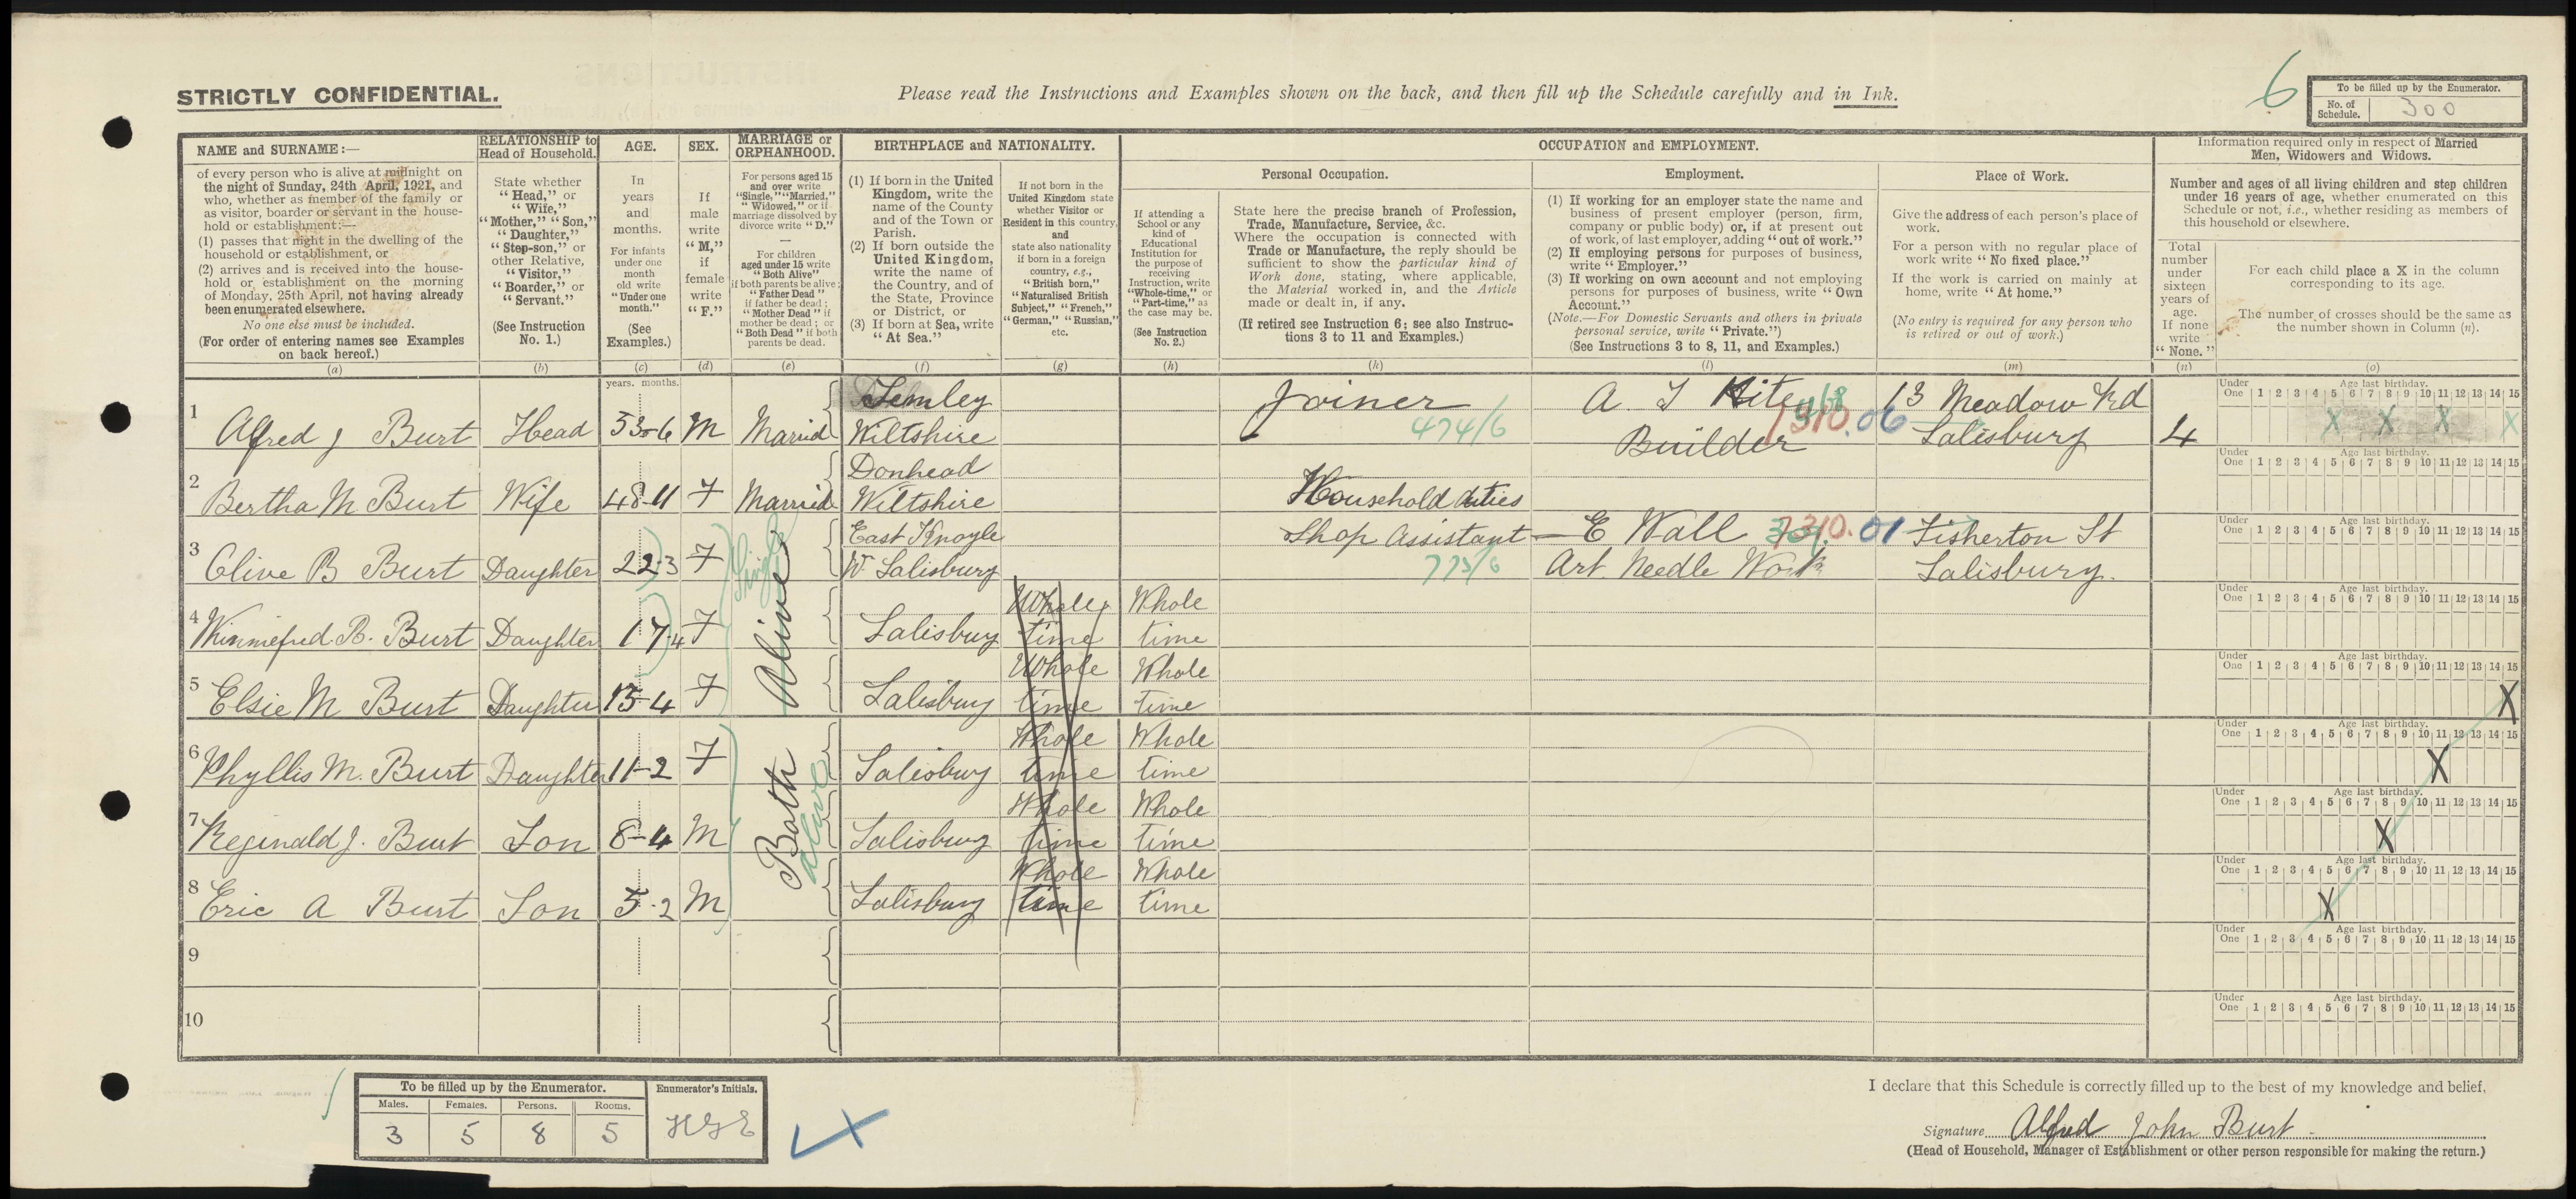 STRICTLY CONFIDENTIAL.
Please read the Instructions and Examples shown on the back, and then fill up the Schedule carefully and in Ink.
6
To be filled up by the Enumerator.
No. of Schedule. 300
NAME and SURNAME:—
of every person who is alive at midnight on
the night of Sunday, 24th April, 1921, and
who, whether as member of the family or
as visitor, boarder or servant in the house-
hold or establishment:—
(1) passes that night in the dwelling of the
household or establishment, or
(2) arrives and is received into the house-
hold or establishment on the morning
of Monday, 25th April, not having already
been enumerated elsewhere.
No one else must be included.
(For order of entering names see Examples
on back hereof.)
(a)
RELATIONSHIP to
Head of Household.
State whether
"Head," or
"Wife,"
"Mother," "Son,"
"Daughter,"
"Step-son," or
other Relative,
"Visitor,"
"Boarder," or
"Servant."
(See Instruction
No. 1.)
(b)
AGE.
In
years
and
months.
For infants
under one
month
old write
"Under one
month."
(See
Examples.)
(c)
years. months.
SEX.
If
male
write
"M,"
if
female
write
"F."
(d)
MARRIAGE or
ORPHANHOOD.
For persons aged 15
and over write
"Single," "Married,"
"Widowed," or if
marriage dissolved by
divorce write "D."
For children
aged under 15 write
"Both Alive"
if both parents be alive;
"Father Dead"
if father be dead;
"Mother Dead" if
mother be dead; or
"Both Dead" if both
parents be dead.
(e)
BIRTHPLACE and NATIONALITY.
(1) If born in the United
Kingdom, write the
name of the County
and of the Town or
Parish.
(2) If born outside the
United Kingdom,
write the name of
the Country, and of
the State, Province
or District, or
(3) If born at Sea, write
"At Sea."
(f)
If not born in the
United Kingdom state
whether Visitor or
Resident in this country,
and
state also nationality
if born in a foreign
country, e.g.,
"British born,"
"Naturalised British
Subject," "French,"
"German," "Russian,"
etc.
(g)
OCCUPATION and EMPLOYMENT.
If attending a
School or any
kind of
Educational
Institution for
the purpose of
receiving
Instruction, write
"Whole-time," or
"Part-time," as
the case may be.
(See Instruction
No. 2.)
(h)
Personal Occupation.
State here the precise branch of Profession,
Trade, Manufacture, Service, &c.
Where the occupation is connected with
Trade or Manufacture, the reply should be
sufficient to show the particular kind of
Work done, stating, where applicable,
the Material worked in, and the Article
made or dealt in, if any.
(If retired see Instruction 6; see also Instruc-
tions 3 to 11 and Examples.)
(k)
Employment.
(1) If working for an employer state the name and
business of present employer (person, firm,
company or public body) or, if at present out
of work, of last employer, adding "out of work."
(2) If employing persons for purposes of business,
write "Employer."
(3) If working on own account and not employing
persons for purposes of business, write "Own
Account."
(Note.—For Domestic Servants and others in private
personal service, write "Private.")
(See Instructions 3 to 8, 11, and Examples.)
(l)
Place of Work.
Give the address of each person's place of
work.
For a person with no regular place of
work write "No fixed place."
If the work is carried on mainly at
home, write "At home."
(No entry is required for any person who
is retired or out of work.)
(m)
Information required only in respect of Married
Men, Widowers and Widows.
Number and ages of all living children and step children
under 16 years of age, whether enumerated on this
Schedule or not, i.e., whether residing as members of
this household or elsewhere.
Total
number
under
sixteen
years of
age.
If none
write
"None."
(n)
For each child place a X in the column
corresponding to its age.
The number of crosses should be the same as
the number shown in Column (n).
(o)
1 Alfred J Burt Head 53-6 M Married Semley Wiltshire Joiner 474/6 A. J Hite Builder 13 Meadow Rd Salisbury 4
Under One 1 2 3 4 5 6 7 8 9 10 11 12 13 14 15
Age last birthday.
X X X X
2 Bertha M Burt Wife 48-11 F Married Donhead Wiltshire Household duties
Under One 1 2 3 4 5 6 7 8 9 10 11 12 13 14 15
Age last birthday.
3 Olive B Burt Daughter 22-3 F Single East Knoyle W. Salisbury Shop Assistant 775/6 E Wall Art. Needle Work Fisherton St Salisbury.
Under One 1 2 3 4 5 6 7 8 9 10 11 12 13 14 15
Age last birthday.
4 Winniefred B. Burt Daughter 17-4 F Salisbury Whole time Whole time
Under One 1 2 3 4 5 6 7 8 9 10 11 12 13 14 15
Age last birthday.
5 Elsie M Burt Daughter 15-4 F Alive Salisbury Whole time Whole time
Under One 1 2 3 4 5 6 7 8 9 10 11 12 13 14 15
Age last birthday.
X
6 Phyllis M. Burt Daughter 11-2 F Both alive Salisbury Whole time Whole time
Under One 1 2 3 4 5 6 7 8 9 10 11 12 13 14 15
Age last birthday.
X
7 Reginald J. Burt Son 8-4 M Salisbury Whole time Whole time
Under One 1 2 3 4 5 6 7 8 9 10 11 12 13 14 15
Age last birthday.
X
8 Eric A Burt Son 5-2 M Salisbury Whole time Whole time
Under One 1 2 3 4 5 6 7 8 9 10 11 12 13 14 15
Age last birthday.
X
9
Under One 1 2 3 4 5 6 7 8 9 10 11 12 13 14 15
Age last birthday.
10
Under One 1 2 3 4 5 6 7 8 9 10 11 12 13 14 15
Age last birthday.
To be filled up by the Enumerator.
Males. Females. Persons. Rooms.
3 5 8 5
Enumerator's Initials.
HGE
I declare that this Schedule is correctly filled up to the best of my knowledge and belief.
Signature Alfred John Burt
(Head of Household, Manager of Establishment or other person responsible for making the return.)